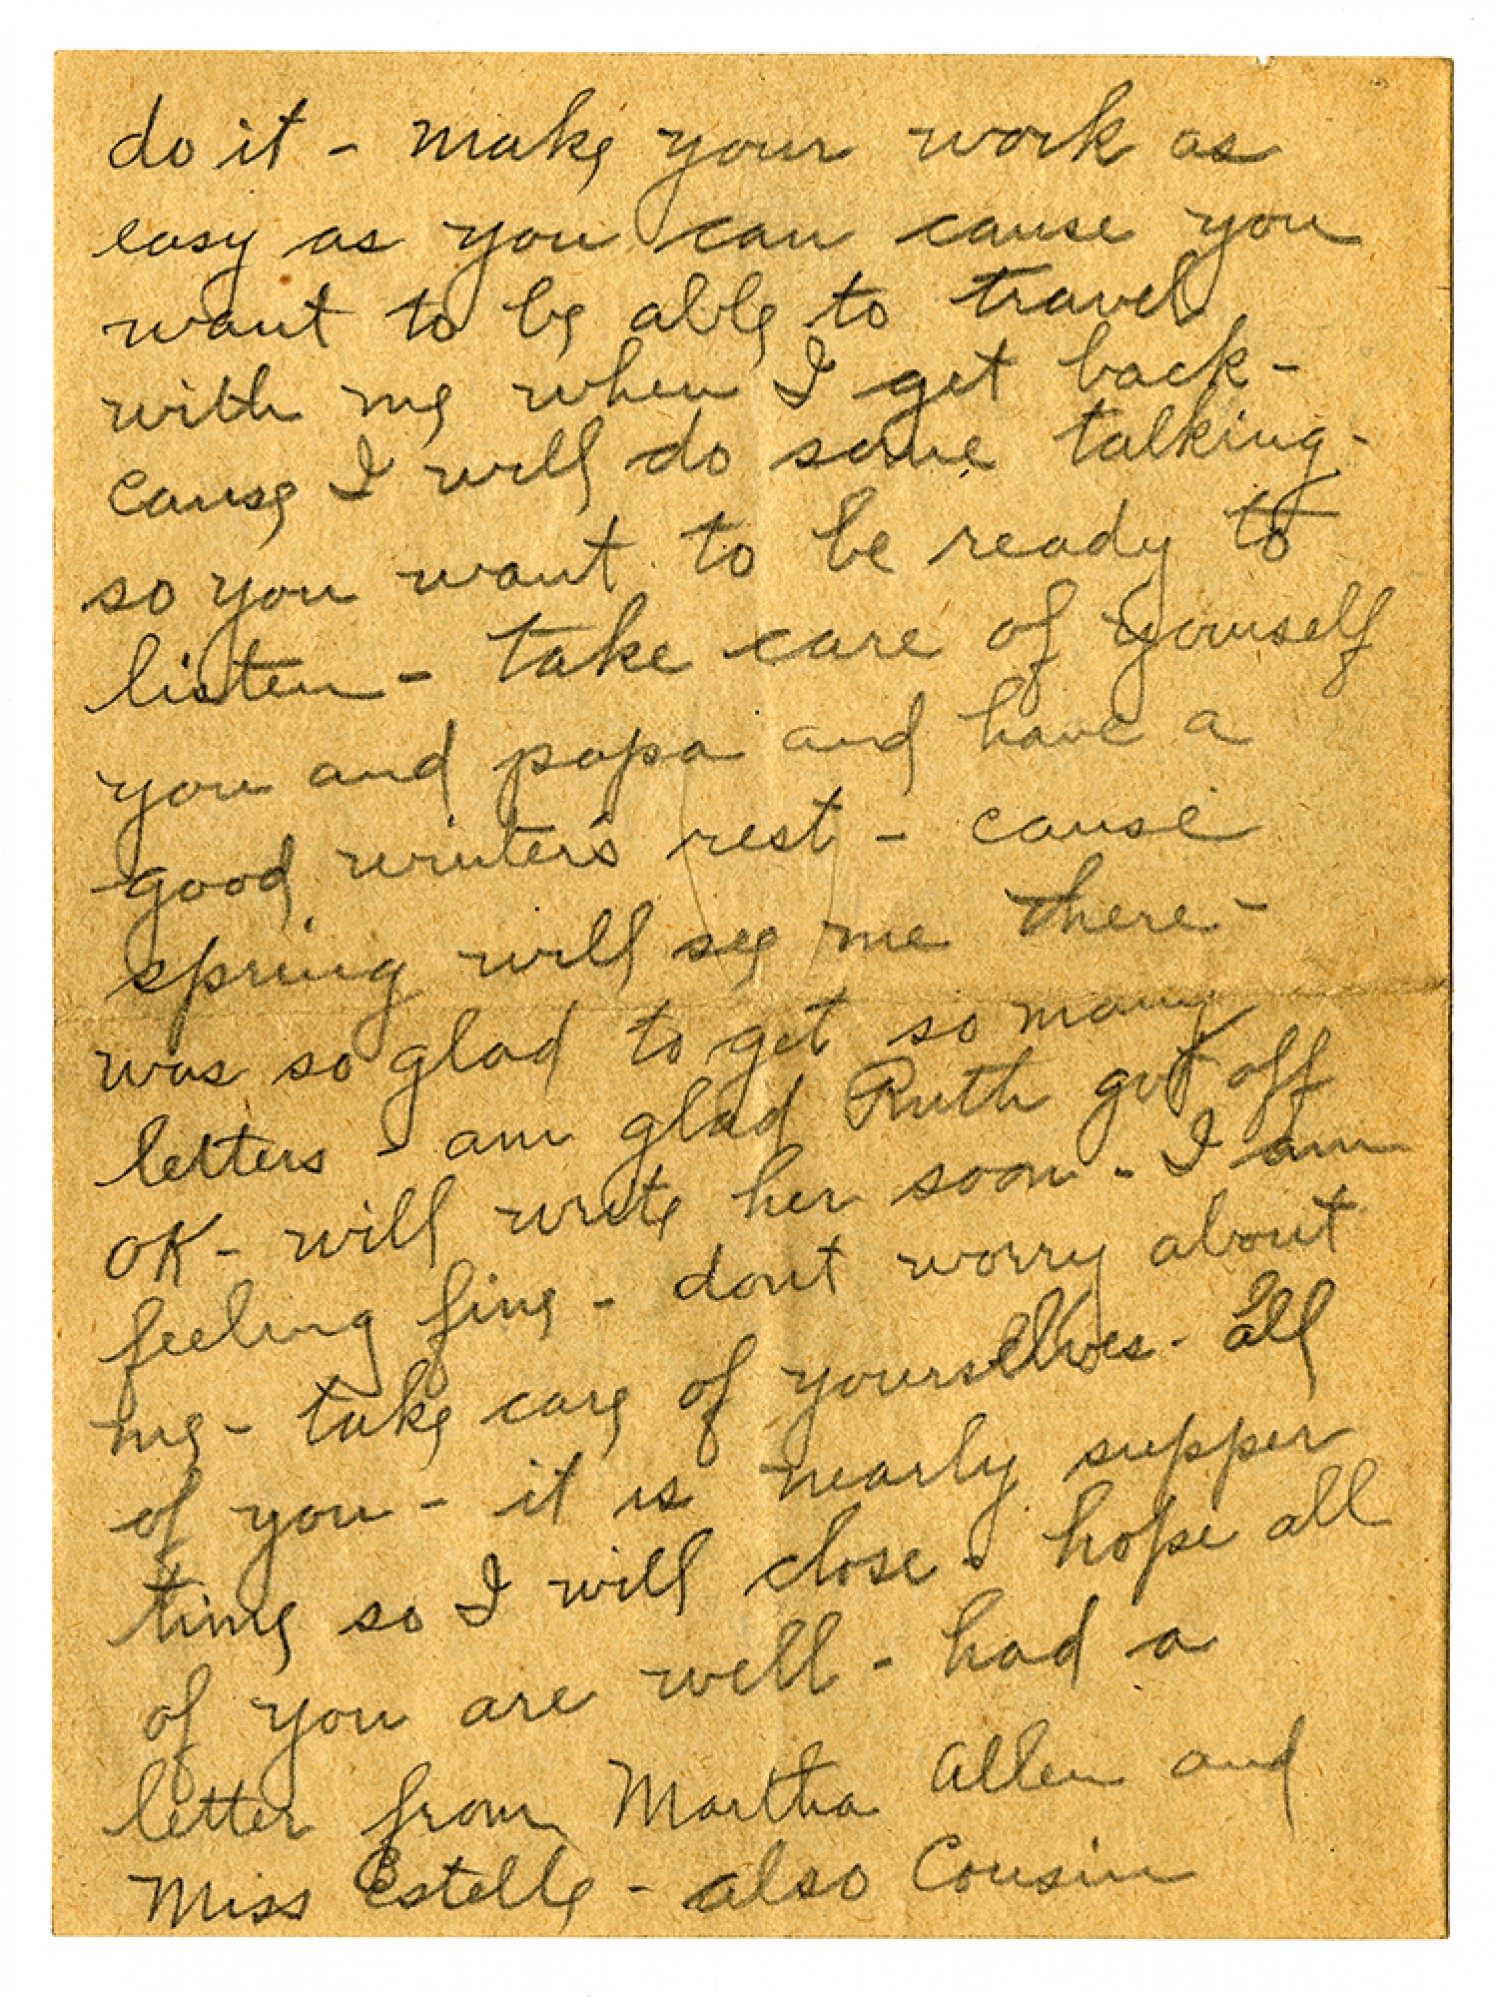 do it - make your work as
easy as you can cause you
want to be able to travel
with me when I get back -
cause I will do some talking -
so you want to be ready to
listen - take care of yourself
you and papa and have a
good winters rest - cause
spring will see me there -
was so glad to get so many
letters - am glad Ruth got off
OK - will write her soon - I am
feeling fine - dont worry about
me - take care of yourselves - all
of you - it is nearly supper
time so I will close - hope all
of you are well - had a
letter from Martha Allen and
Miss Estelle - also Cousin